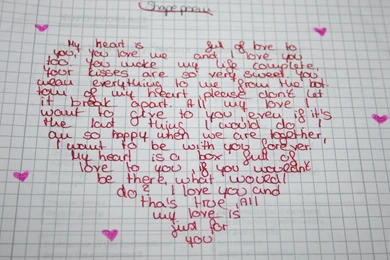 Shape poem
My heart is full of love to
you, you love me and I love you
too. You make my life complete,
Your kisses are so very sweet. You
mean everything to me from the bot
tom of my heart please don't let
it break apart. All my love I
want to give to you, even if it's
the last thing I would do. I
am so happy when we are together,
I want to be with you forever.
My heart is a box full of
love to you if you wouldn't
be there, what would I
do? I love you and
tha's true, All
my love is
just for
you